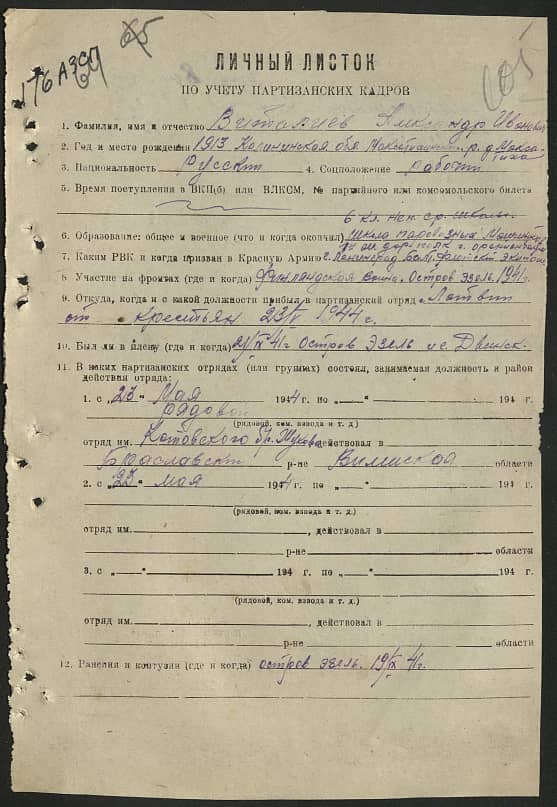 65
105
ЛИЧНЫЙ ЛИСТОК
ПО УЧЕТУ ПАРТИЗАНСКИХ КАДРОВ
1. Фамилия, имя и отчество Александр Иванович
2. Год и место рождения 1913 Калининская обл
3. Национальность Русский 4. Соцположение рабочий
5. Время поступления в ВКП(б) или ВЛКСМ, № партийного или комсомольского билета
6 кл. неп. ср. школы
6. Образование: общее и военное (что и когда окончил) школа паровозных
7. Каким РВК и когда призван в Красную Армию г. Ленинград Балт. флотский экипаж
8. Участие на фронтах (где и когда) Финляндская война. Остров Эзель 1941 г
9. Откуда, когда и с какой должности прибыл в партизанский отряд Латвии
от крестьян 23/V 1944 г.
10. Был ли в плену (где и когда) 21/IX 41 г Остров Эзель Двинск.
11. В каких партизанских отрядах (или группах) состоял, занимаемая должность и район
действия отряда:
1. с „23“ Мая 1944 г. по „ “ 194 г.
рядовой
(рядовой, ком. взвода и т. д.)
отряд им. Котовского бр. Жукова действовал в
Браславский р-не Вилейская области
2. с „23“ мая 1944 г. по „ “ 194 г.
(рядовой, ком. взвода и т. д.)
отряд им. , действовал в
р-не области
3. с „ “ 194 г. по „ “ 194 г.
(рядовой, ком. взвода и т. д.)
отряд им. , действовал в
р-не области
12. Ранения и контузии (где и когда) остров Эзель. 19/IX 41 г.